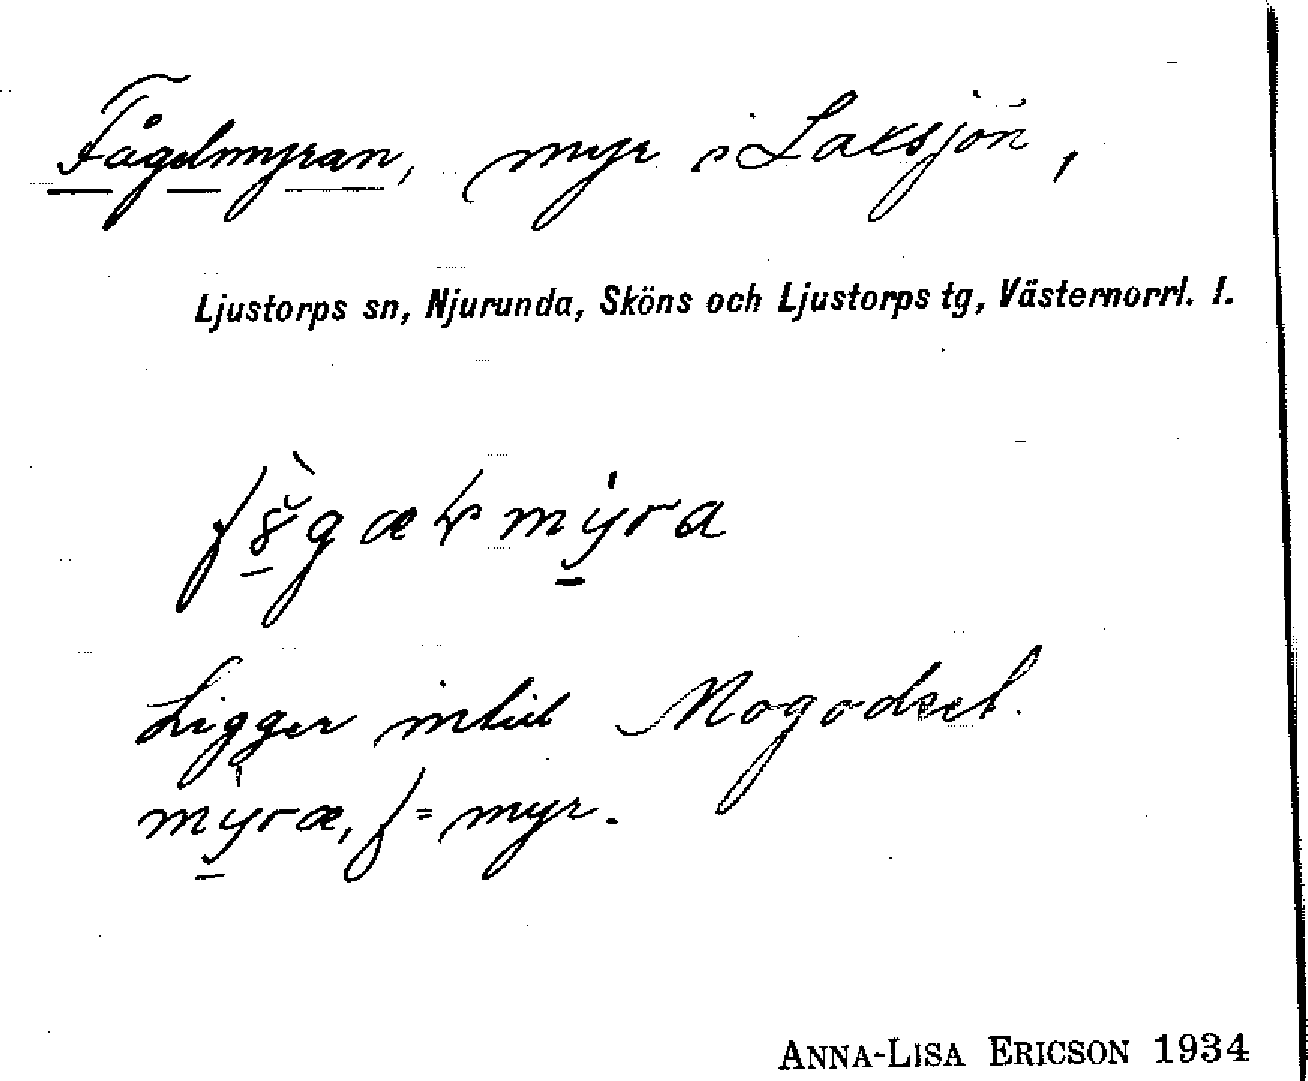 Fågelmyran, myr i Laxsjön,
Ljustorps sn, Njurunda, Sköns och Ljustorps tg, Västernorrl. l.
Ligger intill Mogodset.
myræ, f = myr.
ANNA-LISA ERICSON 1934